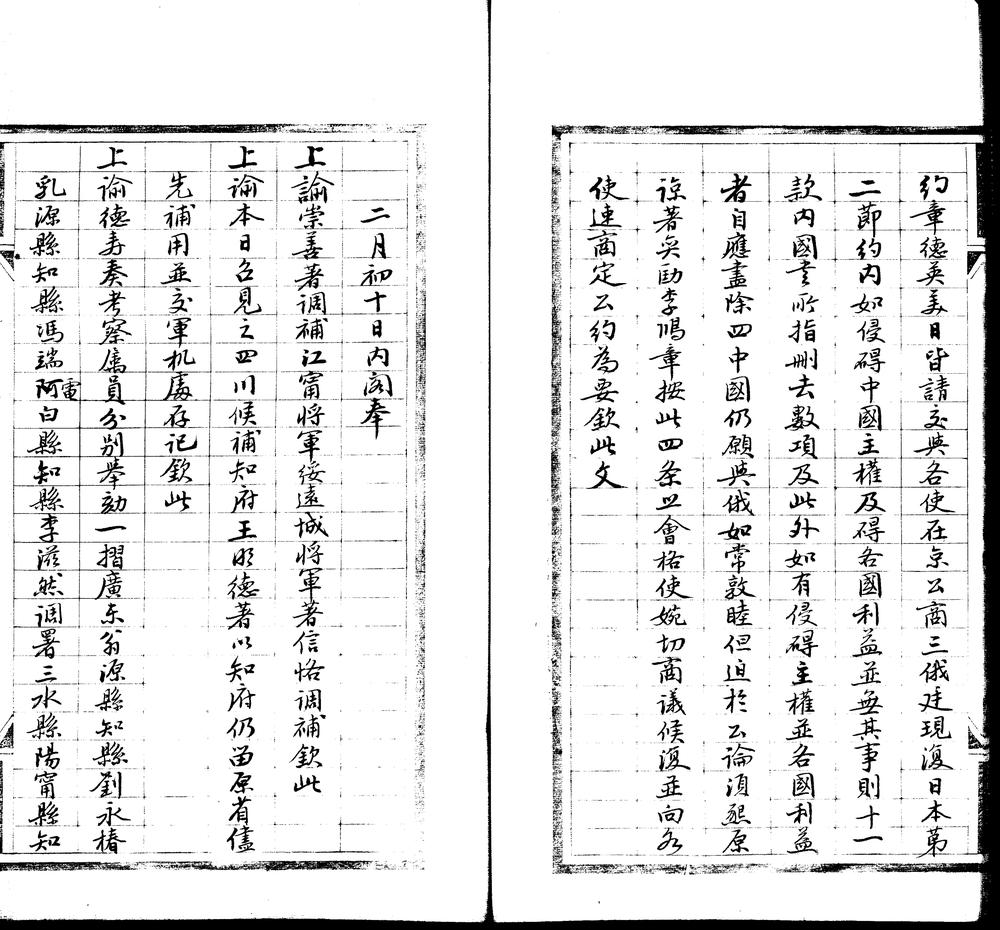 約章德英美日皆請交與各使在京公商三俄廷現復日本苐
二節約內如侵碍中國主權及碍各國利益並無其事則十一
款內國書所指刪去數項及此外如有侵碍主權並各國利益
者自應盡除四中國仍願與俄如常敦睦但迫於公論須懇原
諒著奕劻李鴻章按此四条照會格使婉切商議候復並向各
使速商定公約為要欽此文
二月初十日內阁奉
上諭崇善著调補江甯將軍綏遠城將軍著信恪调補欽此
上谕本日召見之四川候補知府王明德著以知府仍留原省儘
先補用並交軍机處存記欽此
上谕德寿奏考察属員分别舉劾一摺廣东翁源縣知縣劉永椿
乳源縣知縣馮端阿電白縣知縣李滋然调署三水縣陽甯縣知